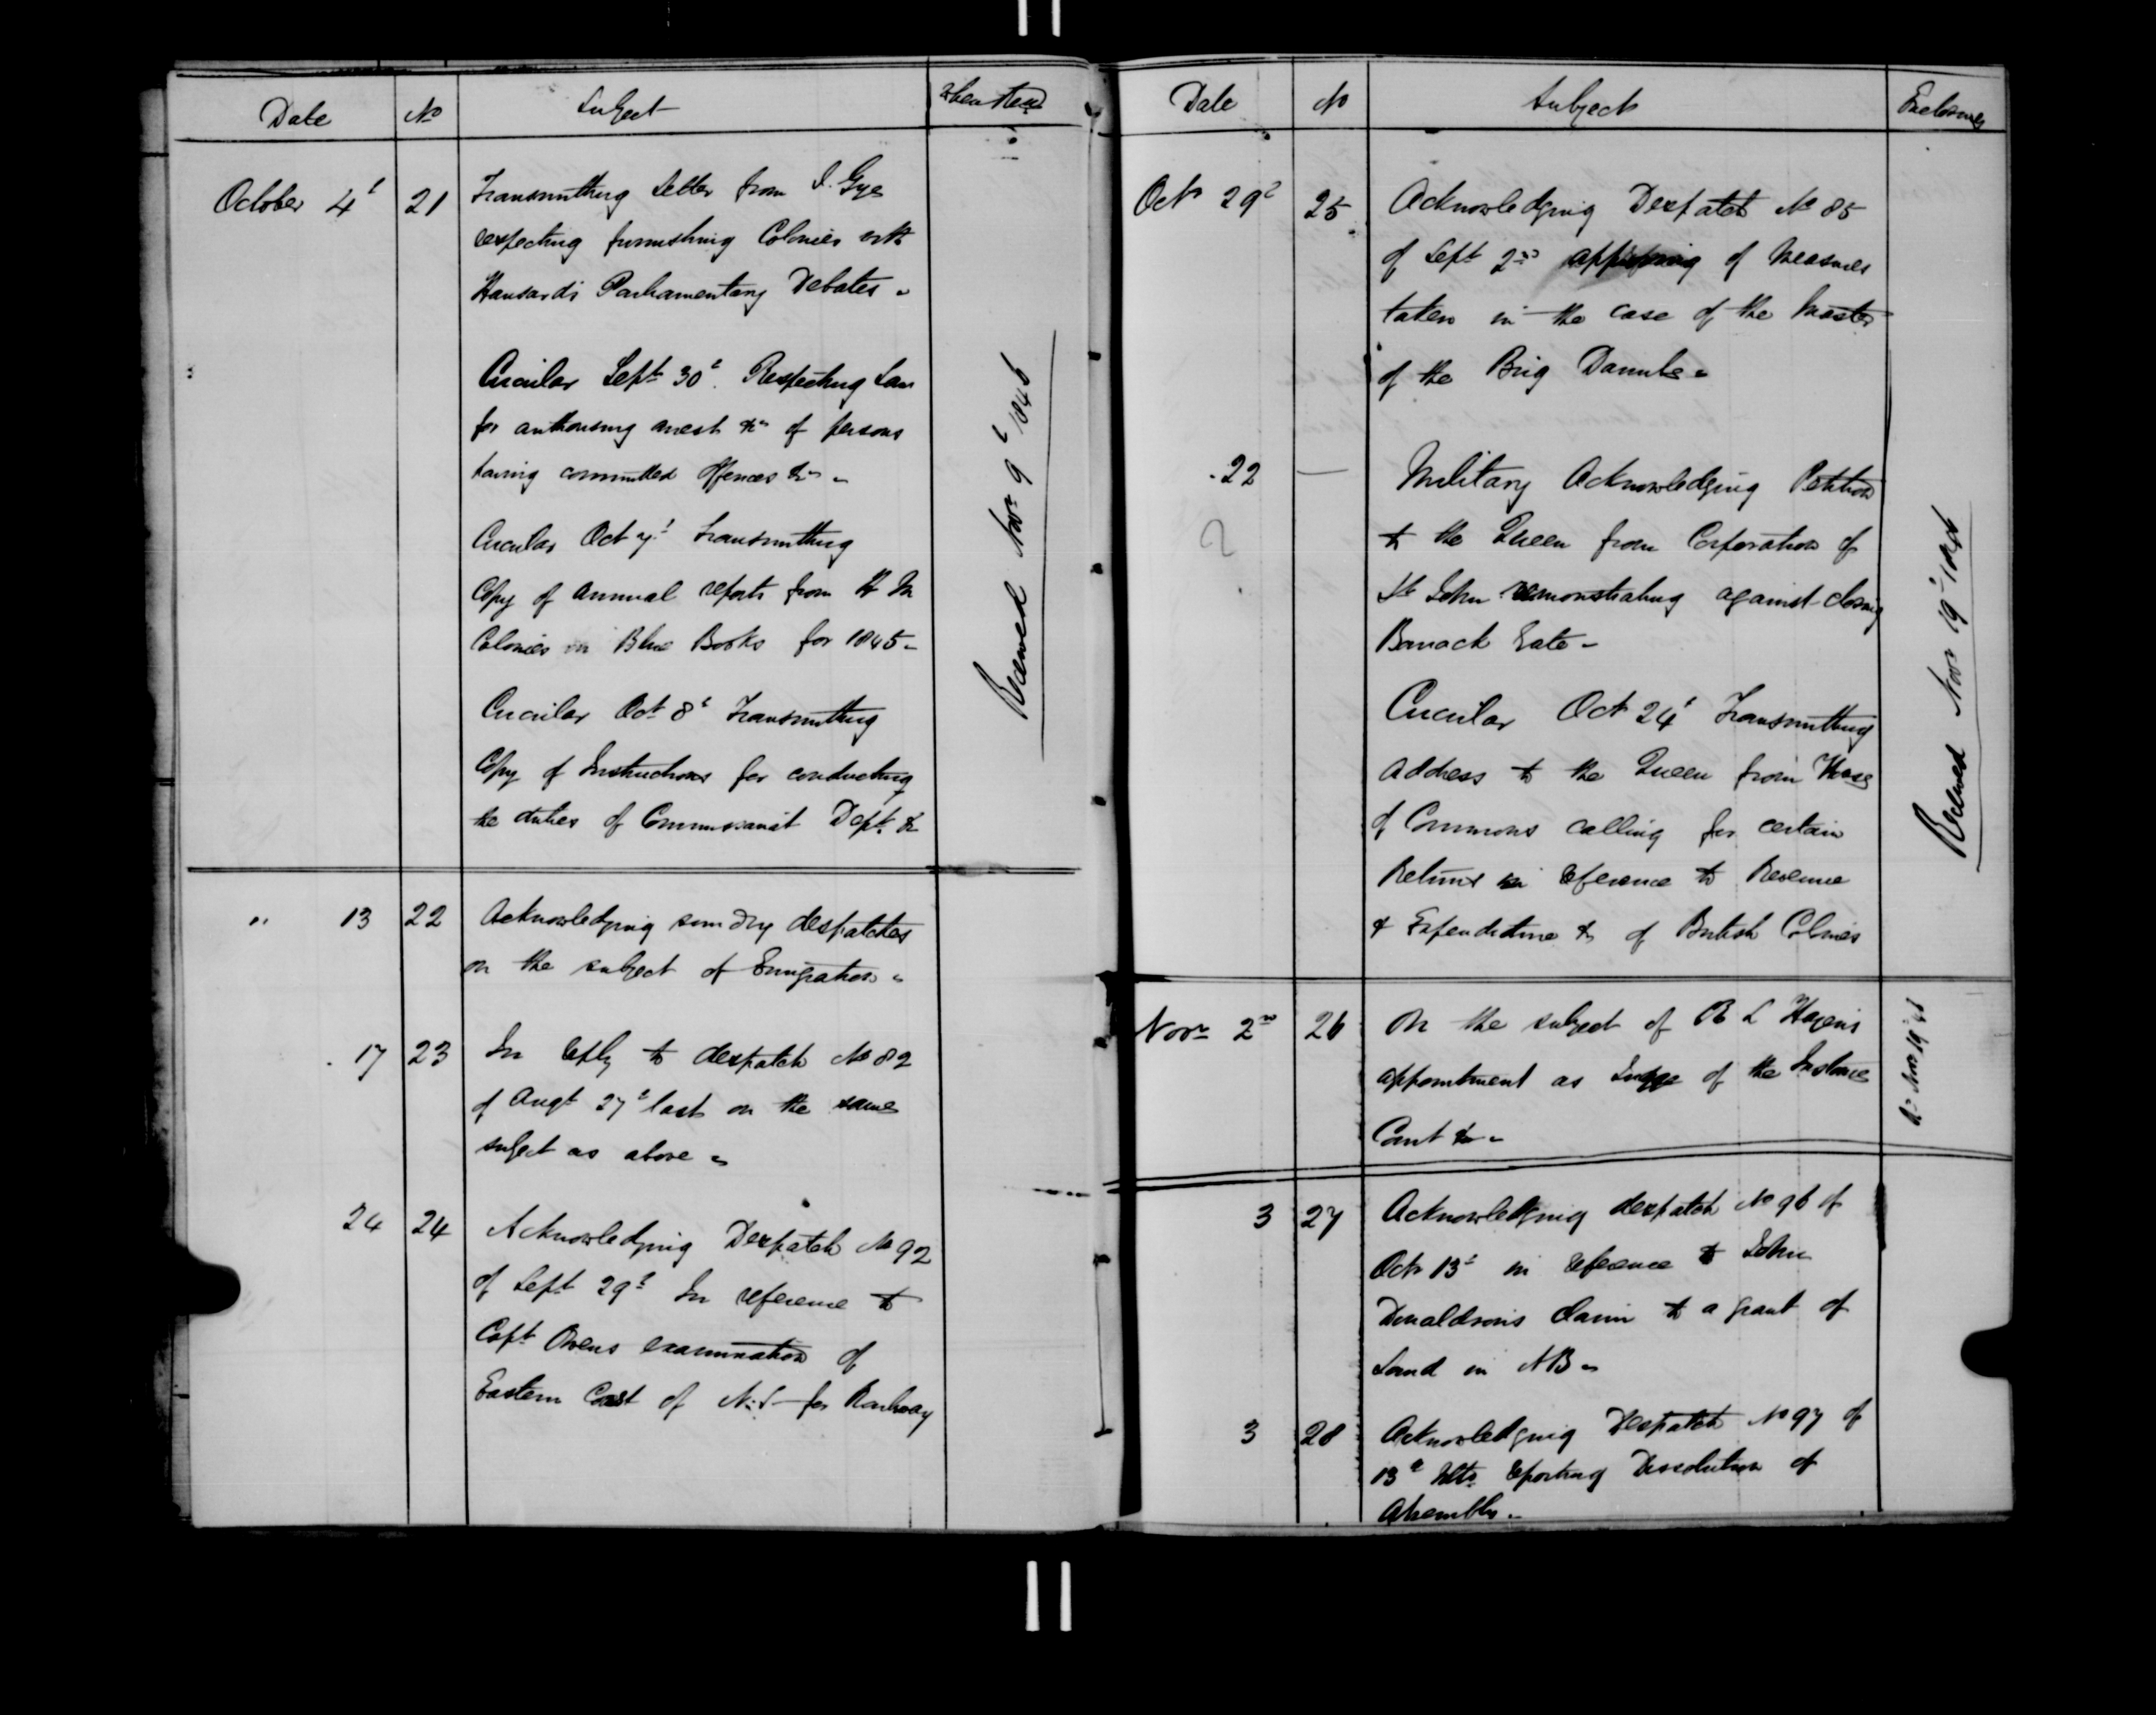 Date No Subject When recd
October 4t 21 Transmitting Letter from I. Gye
respecting furnishing Colonies with
Hansard's Parliamentary Debates
Circular Sept 30t. Respecting Law
for authorising arrest &c of persons
having committed offences &c
Circular Oct 7t transmitting
Copy of annual reports from H M
Colonies in Blue Books for 1845
Circular Oct 8t Transmitting
Copy of Instructions for conducting
the duties of Commissariat Dept &c
Received Nov 9t 1846
" 13 22 Acknowledging sundry despatches
on the subject of Emigration
17 23 In reply to despatch No 82
of Augt 27t last on the same
subject as above
24 24 Acknowledging Despatch No 92
of Sept 29t In reference to
Capt Owens examination of
Eastern Coast of N.S for Railway
Date No Subject Enclosures
Oct 29t 25 Acknowledging Despatch No 85
of Sept 2nd approving of Measures
taken in the case of the Master
of the Brig Danube
22 — Military Acknowledging Petition
to the Queen from Corporation of
St John remonstrating against closing
Barrack Gate
Circular Oct 24t Transmitting
Address to the Queen from House
of Commons calling for certain
Returns in reference to Revenue
& Expenditure &c of British Colonies
Received Nov 19t 1846
Novr 2nd 26 On the subject of R L Hazen's
appointment as Judge of the Instance
Court &c
Nov 19 46
3 27 Acknowledging despatch No 96 of
Oct 13t in reference to John
Donaldson's claim to a grant of
Land in NB
3 28 Acknowledging Despatch No 97 of
13t Ulto reporting Dissolution of
Assembly